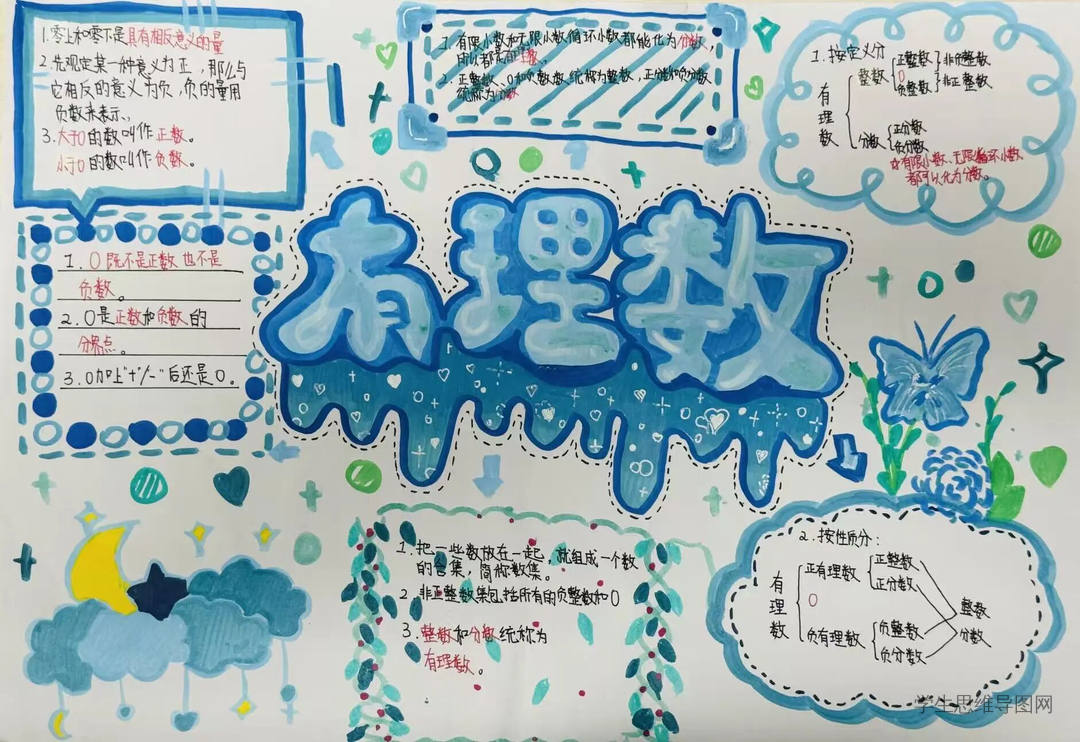 1.零上和零下是具有相反意义的量
2.先规定某一种意义为正，那么与
它相反的意义为负，负的量用
负数来表示、
3.大于0的数叫作正数。
小于0的数叫作负数。
1.有限小数和无限小数循环小数都能化为分数，
所以都是有理数。
2.正整数、0和负数数统称为整数，正分和负分数
统称为分数
1.按定义分
有理数
整数
正整数
0
负整数
非负整数
非正整数
分数
正分数
负分数
☆有限小数、无限循环小数
都可以化为分数。
1.0既不是正数也不是
负数。
2.0是正数和负数的
分界点。
3.0加上“+”/“-”后还是0。
有理数
1.把一些数放在一起，就组成一个数
的合集，简称数集。
2 非正整数集包括所有的负整数和0
3.整数和分数统称为
有理数。
2.按性质分：
有理数
正有理数
正整数
正分数
0
负有理数
负整数
负分数
整数
分数
学生思维导图网